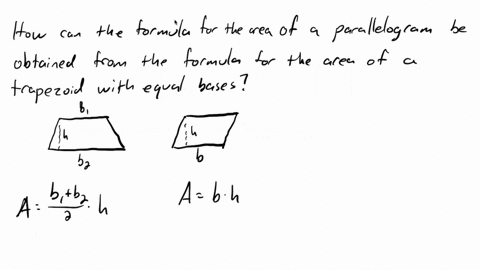 How can the formula for the area of a parallelogram be
obtained from the formula for the area of a
trapezoid with equal bases?
b₁
h
b₂
h
b
A = (b₁+b₂)/2 · h
A = b·h